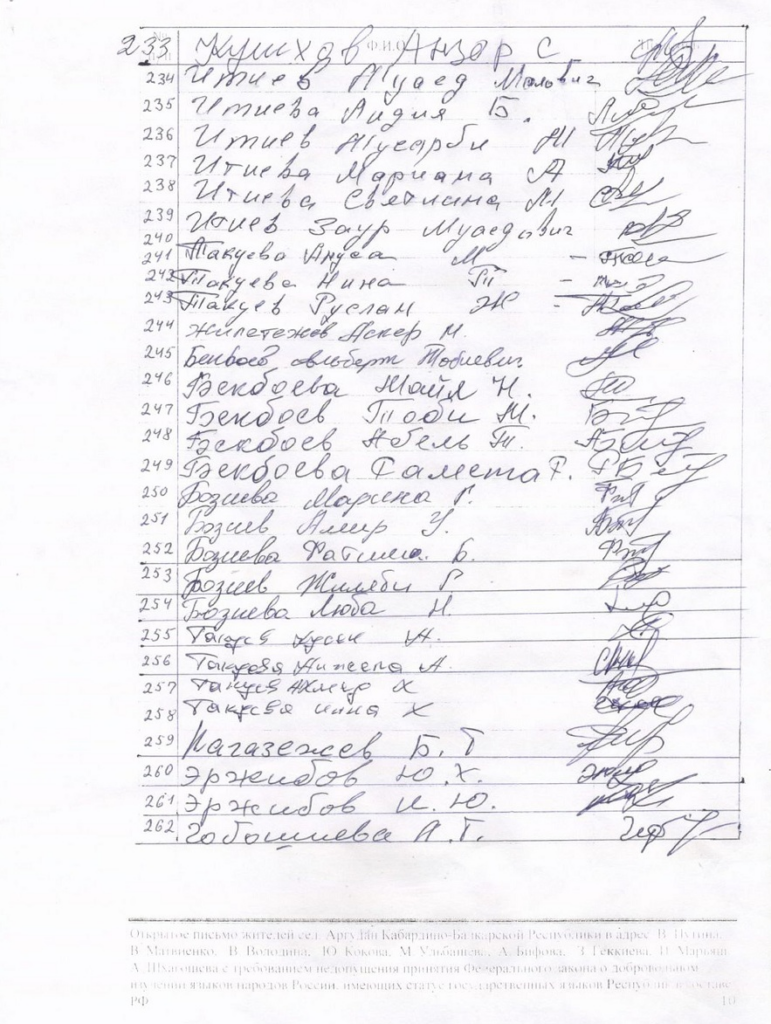 233 Кушхов Анзор С
234 Итиев Муаед Малович
235 Итиева Лидия Б.
236 Итиев Мусарби М
237 Итиева Мариана А
238 Итиева Светлана М
239 Итиев Заур Муаедович
240
241 Такуева М
242 Такуева Нина Т
243 Такуев Руслан Ж
244 Жилетежов Аскер М.
245 Бекбоев Альберт Тобиевич
246 Бекбоева Майя Н.
247 Бекбоев Тоби М.
248 Бекбоев Абель Т.
249 Бекбоева Самета Р.
250 Бозиева Марина Г.
251 Бозиев Амир У.
252 Бозиева Фатима Б.
253 Бозиев Жиляби Г.
254 Бозиева Люба Н.
255 А.
256 Такуева Анжела А.
257 Такуев Ахмед Х
258 Такуева Инна Х
259 Кагазежев Б. Т
260 Эржибов Ю.Х.
261 Эржибов И. Ю.
262 Гобашиева А.Т.
Открытое письмо жителей сел. Аргудан Кабардино-Балкарской Республики в адрес В. Путина,
В. Матвиенко, В. Володина, Ю. Кокова, М. Ульбашева, А. Бифова, З. Геккиева, И. Марьяш,
А. Шхагошева с требованием недопущения принятия Федерального закона о добровольном
изучении языков народов России, имеющих статус государственных языков Республик в составе
РФ 10